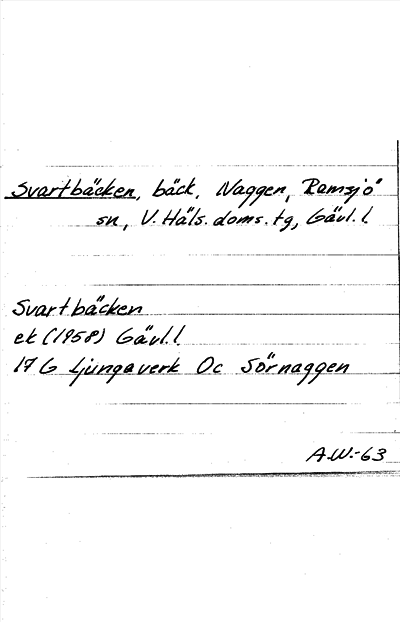 Svartbäcken, bäck, Naggen, Ramsjö
sn, V. Häls. doms. tg, Gävl. l.
Svartbäcken
ek (1958) Gävl. l
17 G Ljungaverk Oc Sörnaggen
A.W.-63